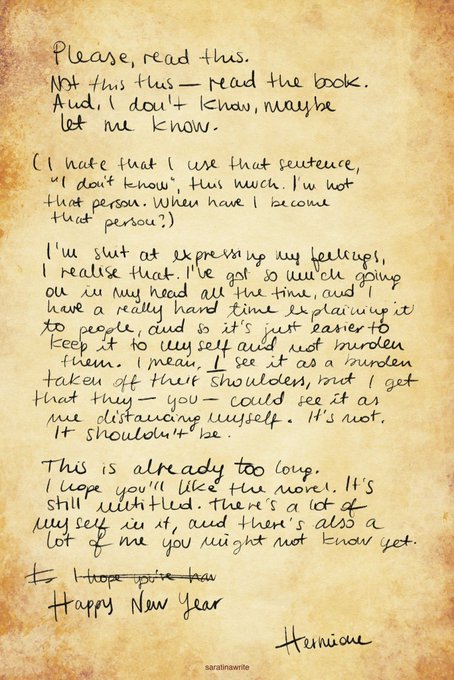 Please, read this.
Not this this — read the book.
And, I don't know, maybe
let me know.
(I hate that I use that sentence,
"I don't know", this much. I'm not
that person. When have I become
that person?)
I'm shit at expressing my feelings,
I realise that. I've got so much going
on in my head all the time, and I
have a really hard time explaining it
to people, and so it's just easier to
keep it to myself and not burden
them. I mean, I see it as a burden
taken off their shoulders, but I get
that they — you — could see it as
me distancing myself. It's not.
It shouldn't be.
This is already too long.
I hope you'll like the novel. It's
still untitled. There's a lot of
myself in it, and there's also a
lot of me you might not know yet.
I hope you're hav
Happy New Year
Hermione
saratinawrite